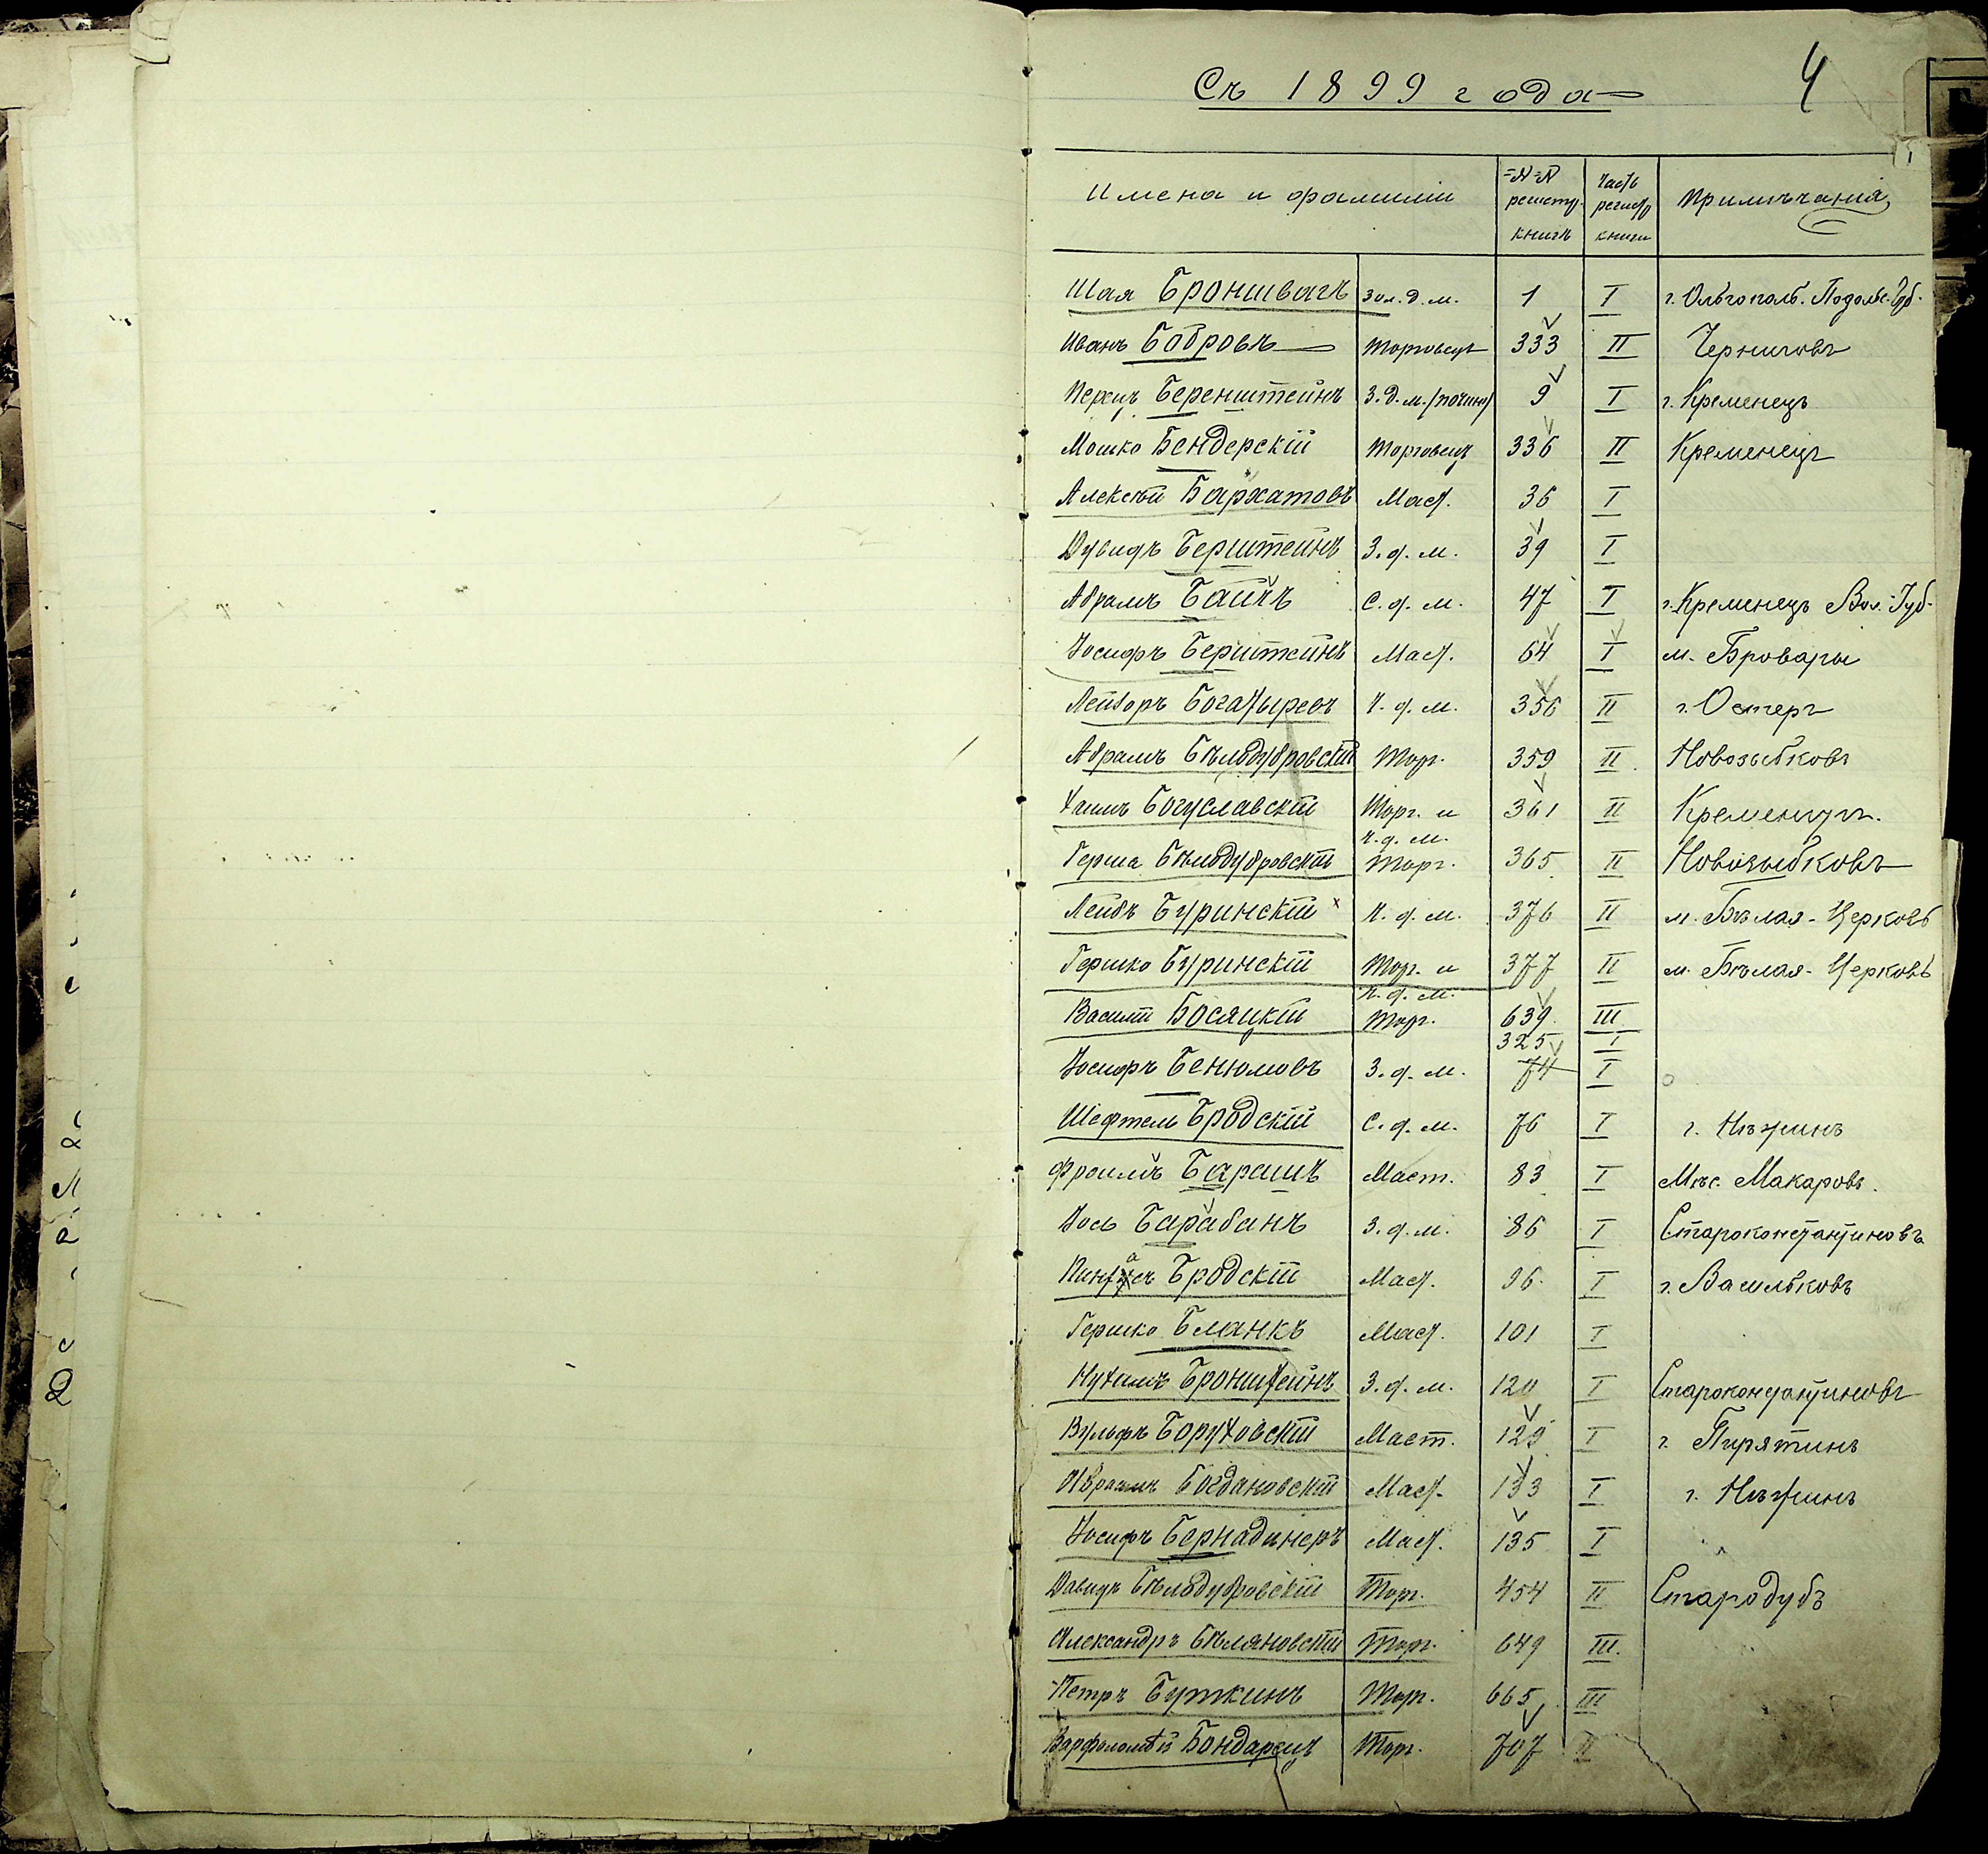 Съ 1899 года
4
Имена и фамиліи №№ реестр. книгъ Часть книги Примѣчанія
Шая Броншвагъ Зол. д. м. 1 I г. Ольгополь. Подольс. Губ.
Иванъ Бобровъ Торговецъ 333 II Черниговъ
Перецъ Беренштейнъ З. д. м. 9 I г. Кременецъ
Мошко Бендерскій Торговецъ 336 II Кременецъ
Алексѣй Бархатовъ Маст. 36 I
Дувидъ Берштейнъ З. д. м. 39 I
Абрамъ Байчъ С. д. м. 47 I г. Кременецъ Вол. Губ.
Іосифъ Берштейнъ Маст. 64 I м. Бровары
Лейзоръ Богатыревъ Ч. д. м. 356 II г. Остеръ
Абрамъ Бѣлодубровскій Тор. 359 II Новозыбковъ
Хаимъ Богуславскій Торг. и 361 II Кременчугъ.
ч. д. м.
Герша Бѣлодубровскій Торг. 365 II Новозыбковъ
Лейбъ Буринскій х Ч. д. м. 376 II м. Бѣлая-Церковь
Гершко Буринскій Тор. и 377 II м. Бѣлая-Церковь
ч. д. м.
Василій Босяцкій Тор. 639 III
325 I
Іосифъ Бенюмовъ З. д. м. 74 I
Шефтель Бродскій С. д. м. 76 I г. Нѣжинъ
Фроимъ Барашъ Маст. 83 I Мѣс. Макаровъ.
Іось Барабанъ З. д. м. 86 I Староконстантиновъ
Пинхасъ Бродскій Маст. 96 I г. Васильковъ
Гершко Бланкъ Маст. 101 I
Нухимъ Бронштейнъ З. д. м. 120 I Староконстантиновъ
Вульфъ Боруховскій Маст. 129 I г. Пирятинъ
Абрамъ Богдановскій Маст. 133 I г. Нѣжинъ
Іосифъ Бернадинеръ Маст. 135 I
Давидъ Бѣлодубровскій Торг. 454 II Стародубъ
Александръ Бѣляновскій Торг. 649 III.
Петръ Буткинъ Торг. 665 III
Варфоломѣй Бондарецъ Торг. 707 II